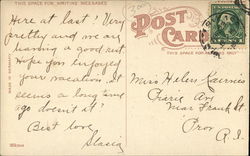 THIS SPACE FOR WRITING MESSAGES
POST CARD
THIS SPACE FOR ADDRESS ONLY
MADE IN GERMANY
Here at last! Very
pretty and we are
having a good rest.
Hope you enjoyed
your vacation. It
seems a long time
ago doesn't it?
Best love,
Miss Helen
Prairie Ave
near
Prov.
R.I.